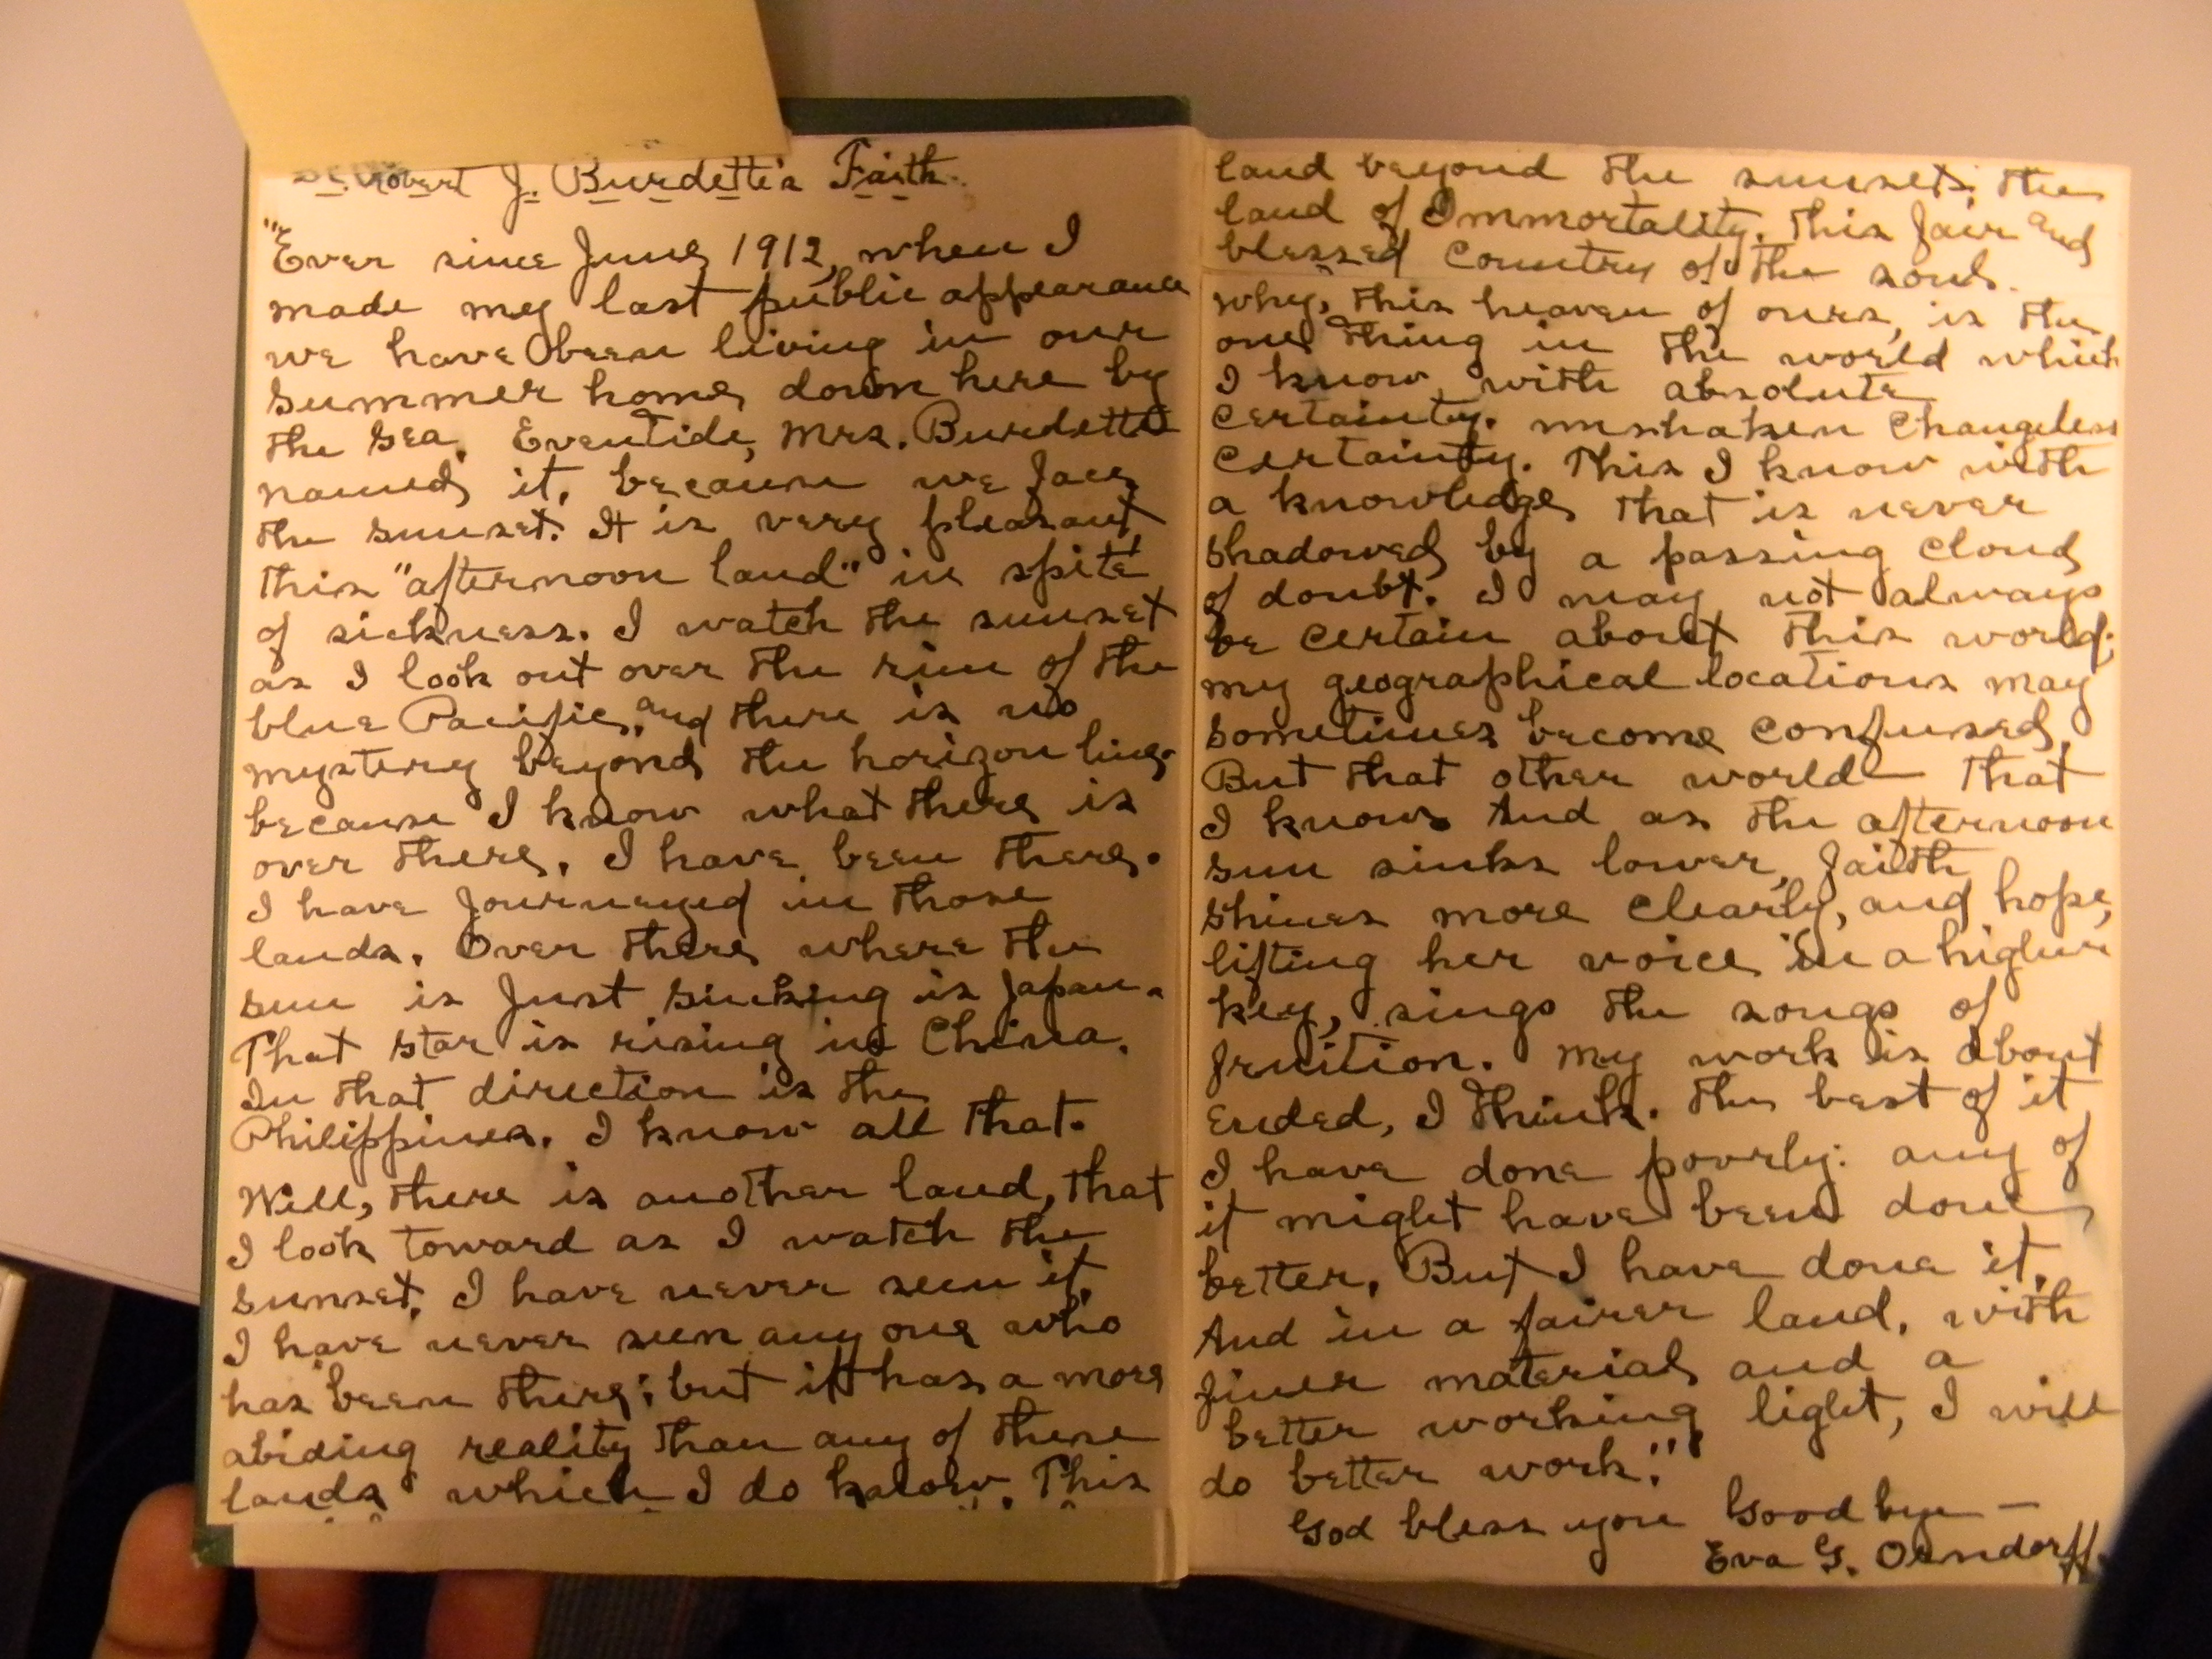 Robert J. Burdette's Faith.
"Ever since June, 1912, when I
made my last public appearance
we have been living in our
summer home, down here by
the sea. Eventide, Mrs. Burdette
named it, because we face
the sunset. It is very pleasant,
this "afternoon land" in spite
of sickness. I watch the sunset
as I look out over the rim of the
blue Pacific, and there is no
mystery beyond the horizon line,
because I know what there is
over there. I have been there.
I have journeyed in those
lands. Over there where the
sun is just sinking is Japan.
That star is rising in China.
In that direction is the
Philippines. I know all that.
Well, there is another land, that
I look toward as I watch the
sunset. I have never seen it.
I have never seen any one who
has been there; but it has a more
abiding reality than any of these
lands which I do know. This
land beyond the sunset; the
land of Immortality, this fair and
blessed country of the soul.
why, this heaven of ours, is the
one thing in the world which
I know with absolute
certainty. unshaken changeless
certainty. This I know with
a knowledge that is never
shadowed by a passing cloud
of doubt. I may not always
be certain about this world;
my geographical locations may
sometimes become confused,
But that other world — that
I know. And as the afternoon
sun sinks lower, faith
shines more clearly, and hope,
lifting her voice in a higher
key, sings the songs of
fruition. My work is about
ended, I think. The best of it
I have done poorly: any of
it might have been done
better, But I have done it.
And in a fairer land, with
finer material and a
better working light, I will
do better work."
God bless you Good bye —
Eva G. Orndorff.